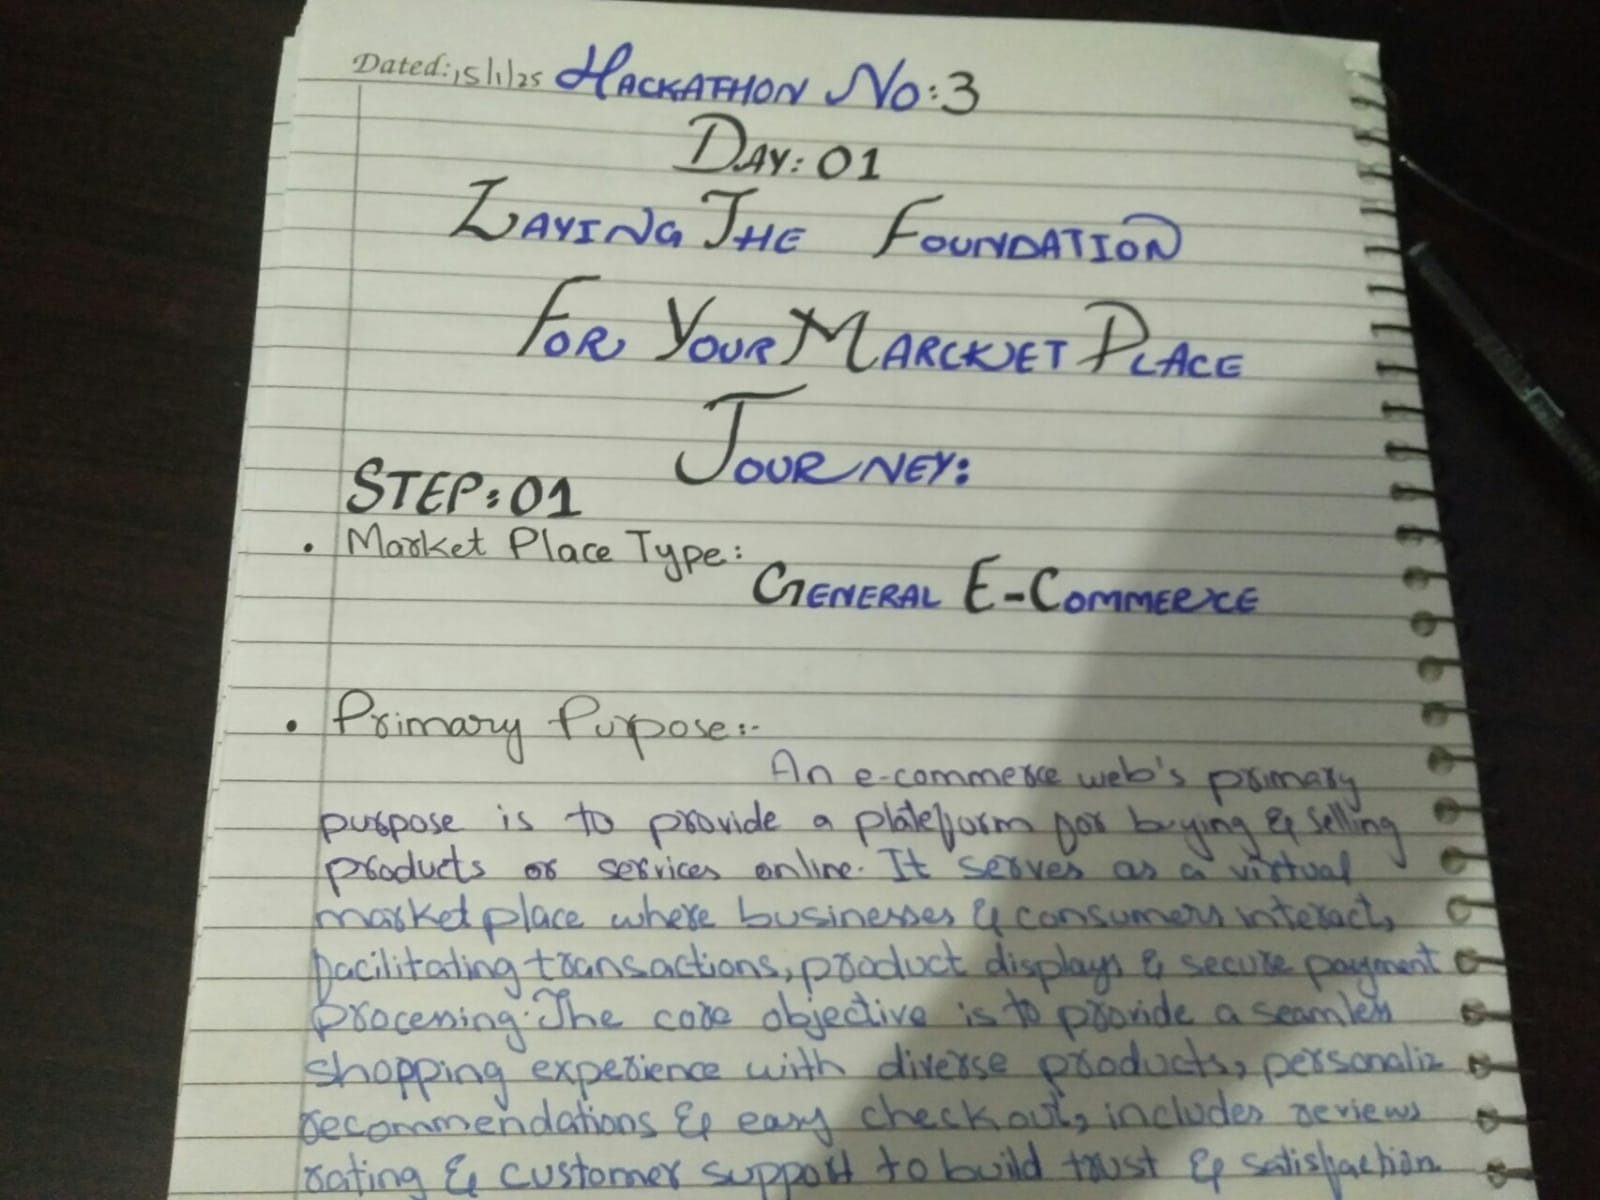 Dated: 15/1/25 HACKATHON NO:3
DAY: 01
LAYING THE FOUNDATION
FOR YOUR MARCKET PLACE
JOURNEY:
STEP:01
• Market Place Type:
GENERAL E-COMMERCE
• Primary Purpose:-
An e-commerce web's primary
purpose is to provide a plateform for buying & selling
products or services online. It serves as a virtual
market place where businesses & consumers interact,
facilitating transactions, product displays & secure payment
processing. The core objective is to provide a seamless
shopping experience with diverse products, personaliz
recommendations & easy checkout, includes reviews
rating & customer support to build trust & satisfaction.